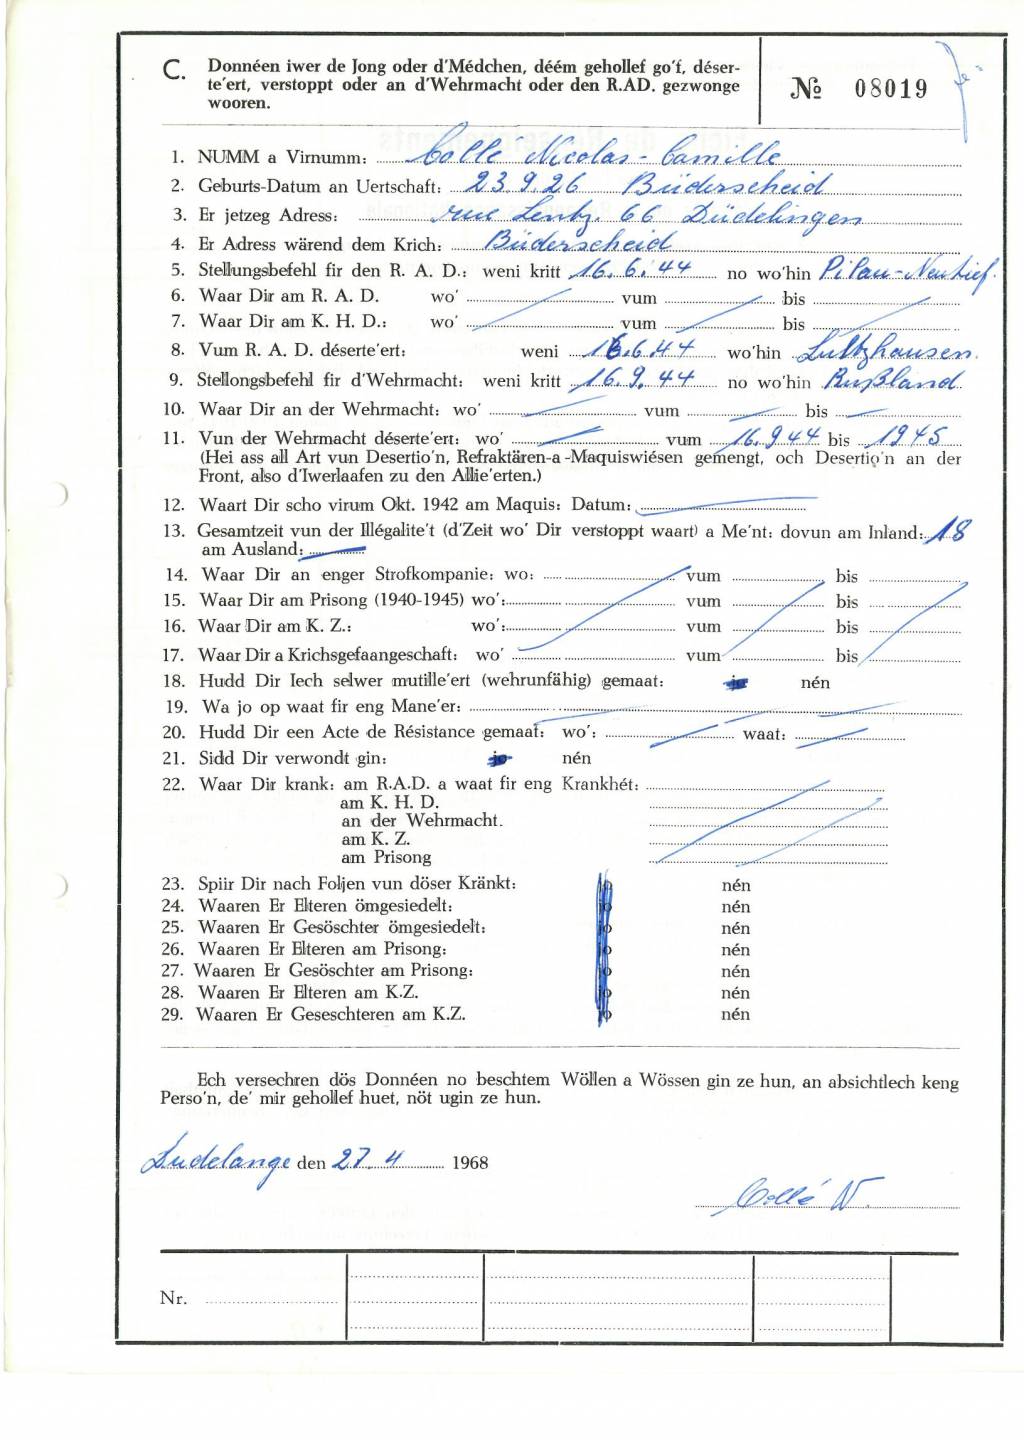 C. Donnéen iwer de Jong oder d'Médchen, déém gehollef go'f, déser-
te'ert, verstoppt oder an d'Wehrmacht oder den R.AD. gezwonge
wooren.
№ 08019
1. NUMM a Virnumm: Collé Nicolas-Camille
2. Geburts-Datum an Uertschaft: 23.9.26 Büderscheid
3. Er jetzeg Adress: rue Lentz. 66 Düdelingen
4. Er Adress wärend dem Krich: Büderscheid
5. Stellungsbefehl fir den R. A. D.: weni kritt 16.6.44 no wo'hin Pilau-Neutief.
6. Waar Dir am R. A. D. wo' vum bis
7. Waar Dir am K. H. D.: wo' vum bis
8. Vum R. A. D. déserte'ert: weni 16.6.44 wo'hin Lultzhausen.
9. Stellongsbefehl fir d'Wehrmacht: weni kritt 16.9.44 no wo'hin Rußland
10. Waar Dir an der Wehrmacht: wo' vum bis
11. Vun der Wehrmacht déserte'ert: wo' vum 16.9 44 bis 1945
(Hei ass all Art vun Desertio'n, Refraktären-a-Maquiswiésen gemengt, och Desertio'n an der
Front, also d'Iwerlaafen zu den Allie'erten.)
12. Waart Dir scho virum Okt. 1942 am Maquis: Datum:
13. Gesamtzeit vun der Illégalite't (d'Zeit wo' Dir verstoppt waart) a Me'nt: dovun am Inland: 18
am Ausland:
14. Waar Dir an enger Strofkompanie: wo: vum bis
15. Waar Dir am Prisong (1940-1945) wo': vum bis
16. Waar Dir am K. Z.: wo': vum bis
17. Waar Dir a Krichsgefaangeschaft: wo' vum bis
18. Hudd Dir Iech selwer mutille'ert (wehrunfähig) gemaat: jo nén
19. Wa jo op waat fir eng Mane'er:
20. Hudd Dir een Acte de Résistance gemaat: wo': waat:
21. Sidd Dir verwondt gin: jo nén
22. Waar Dir krank: am R.A.D. a waat fir eng Krankhét:
am K. H. D.
an der Wehrmacht.
am K. Z.
am Prisong
23. Spiir Dir nach Foljen vun döser Kränkt: jo nén
24. Waaren Er Elteren ömgesiedelt: jo nén
25. Waaren Er Gesöschter ömgesiedelt: jo nén
26. Waaren Er Elteren am Prisong: jo nén
27. Waaren Er Gesöschter am Prisong: jo nén
28. Waaren Er Elteren am K.Z. jo nén
29. Waaren Er Geseschteren am K.Z. jo nén
Ech versechren dös Donnéen no beschtem Wöllen a Wössen gin ze hun, an absichtlech keng
Perso'n, de' mir gehollef huet, nöt ugin ze hun.
Dudelange den 27. 4 1968
Collé N.
Nr.